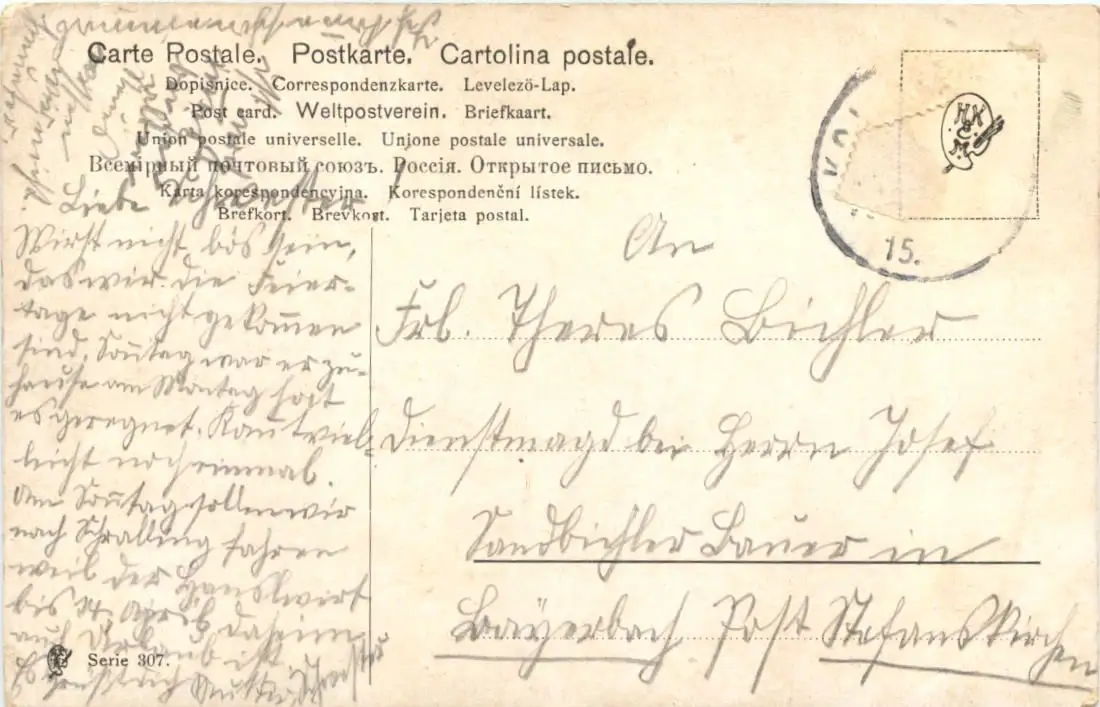 Carte Postale. Postkarte. Cartolina postale.
Dopisnice. Correspondenzkarte. Levelező-Lap.
Post card. Weltpostverein. Briefkaart.
Union postale universelle. Unione postale universale.
Всемірный почтовый союзъ. Россія. Открытое письмо.
Karta korespondencyjna. Korespondenční lístek.
Brefkort. Brevkort. Tarjeta postal.
H K
& 
M.
15.
Liebe Schwester
Wirst nicht bös sein,
das wir die Feier-
tage nicht gekom̅en
sind, Son̅tag war er zu-
hause am Montag hat
es geregnet. Kom̅t viel-
leicht noch einmal.
Am Son̅tag sollen wir
nach Schralling fahren
weil der Hanslwirt
bis 24. April daheim
auf Urlaub ist.
Es grüßt dich Mutter, Schwester
An
Frl. Theres Bichler
Dienstmagd bei Herrn Josef
Sandbichler Bauer in
Bayerbach Post Stefanskirchen
Serie 307.